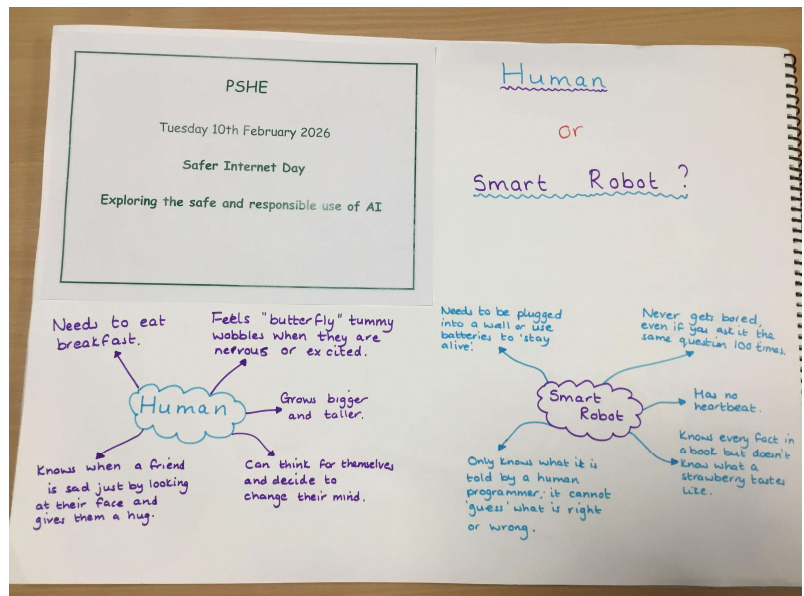 PSHE
Tuesday 10th February 2026
Safer Internet Day
Exploring the safe and responsible use of AI
Human
or
Smart Robot ?
Needs to eat
breakfast.
Feels "butterfly" tummy
wobbles when they are
nervous or excited.
Human
Grows bigger
and taller.
Knows when a friend
is sad just by looking
at their face and
gives them a hug.
Can think for themselves
and decide to
change their mind.
Needs to be plugged
into a wall or use
batteries to 'stay
alive'.
Never gets bored,
even if you ask it the
same question 100 times.
Smart
Robot
Has no
heartbeat.
Knows every fact in
a book but doesn't
know what a
strawberry tastes
like.
Only knows what it is
told by a human
programmer; it cannot
'guess' what is right
or wrong.